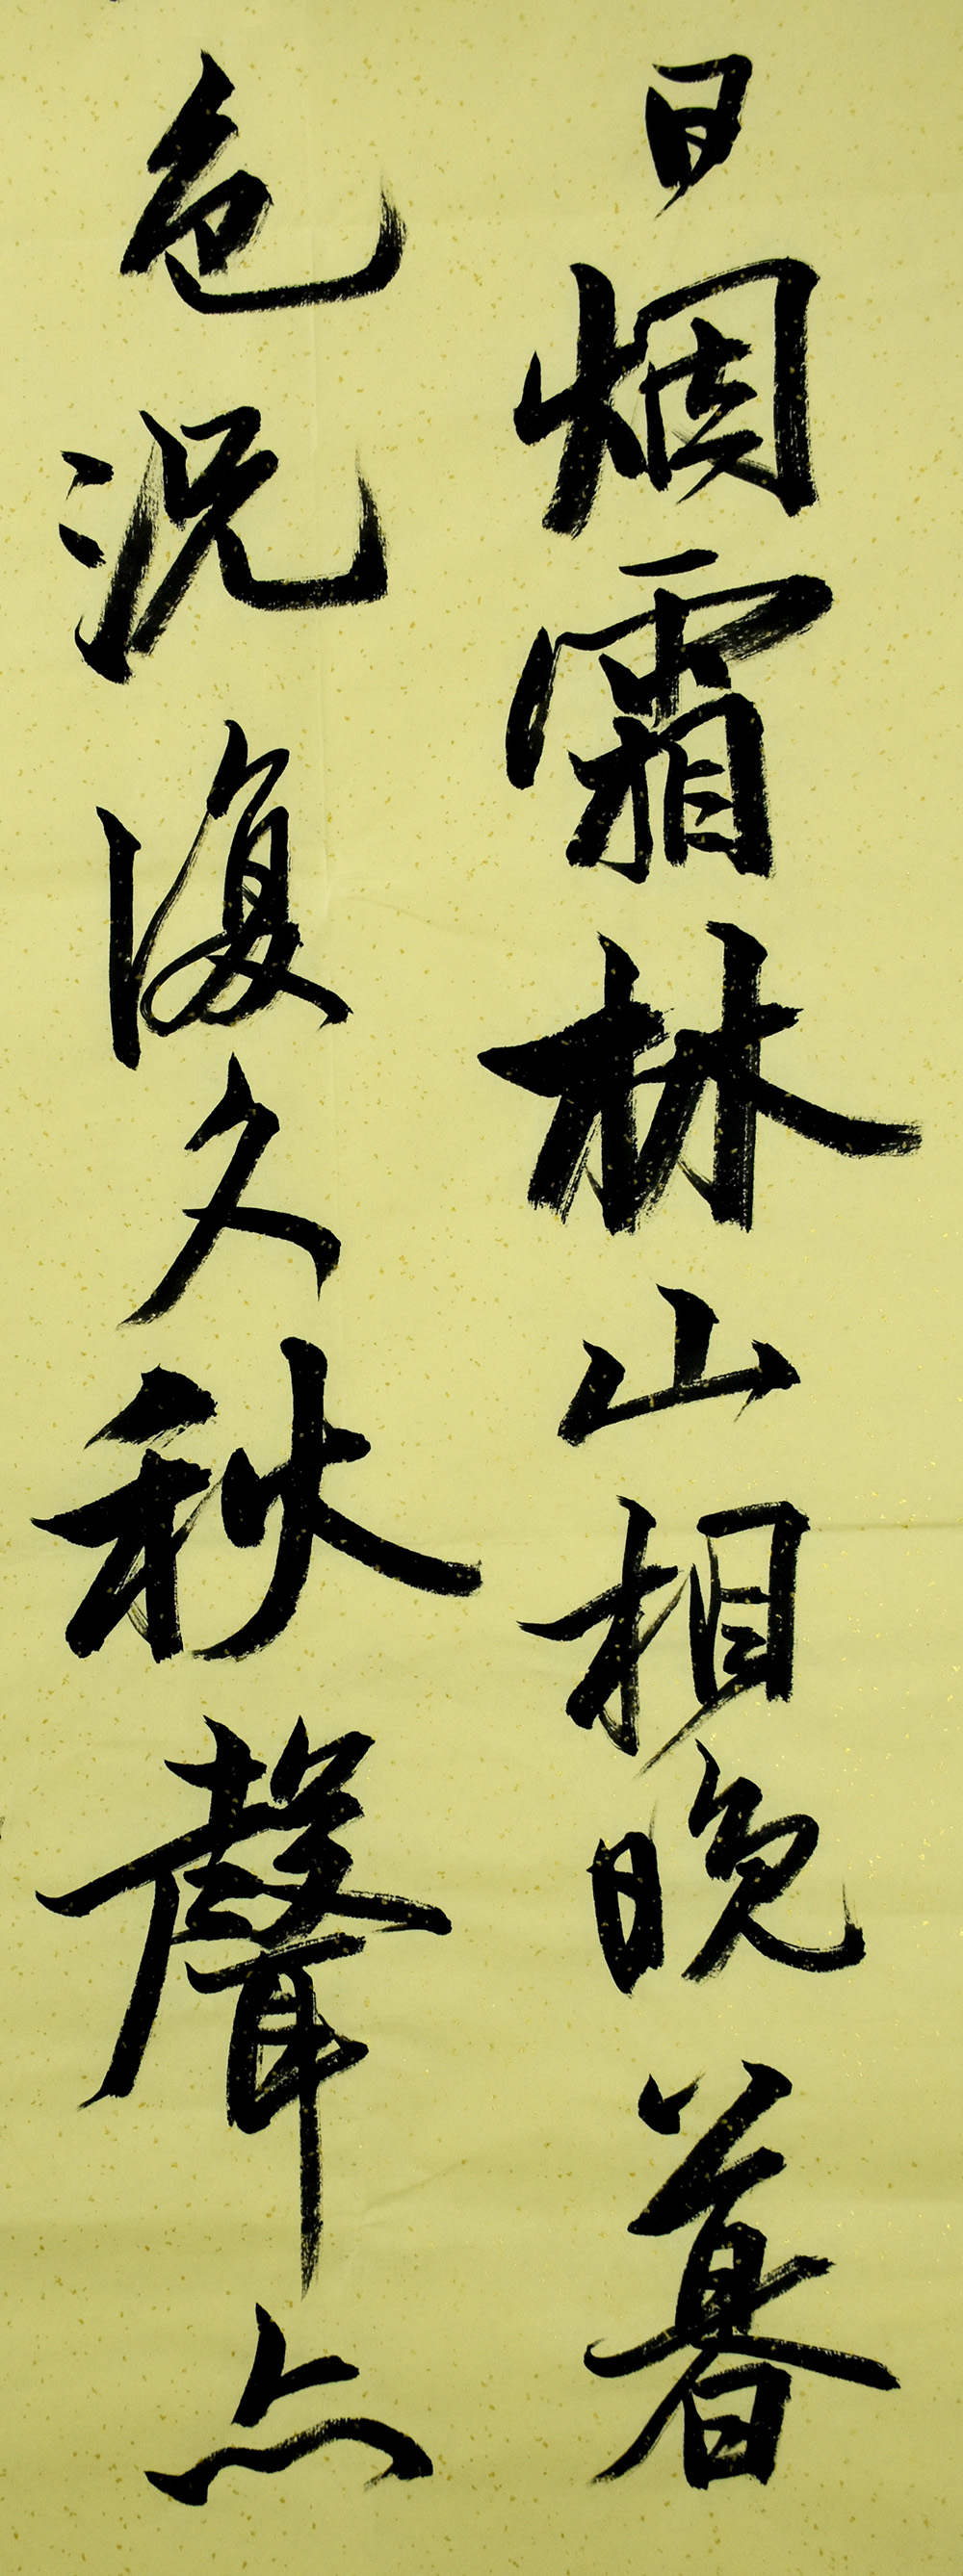 日烟霜林山相晚暮
色况復久秋聲点